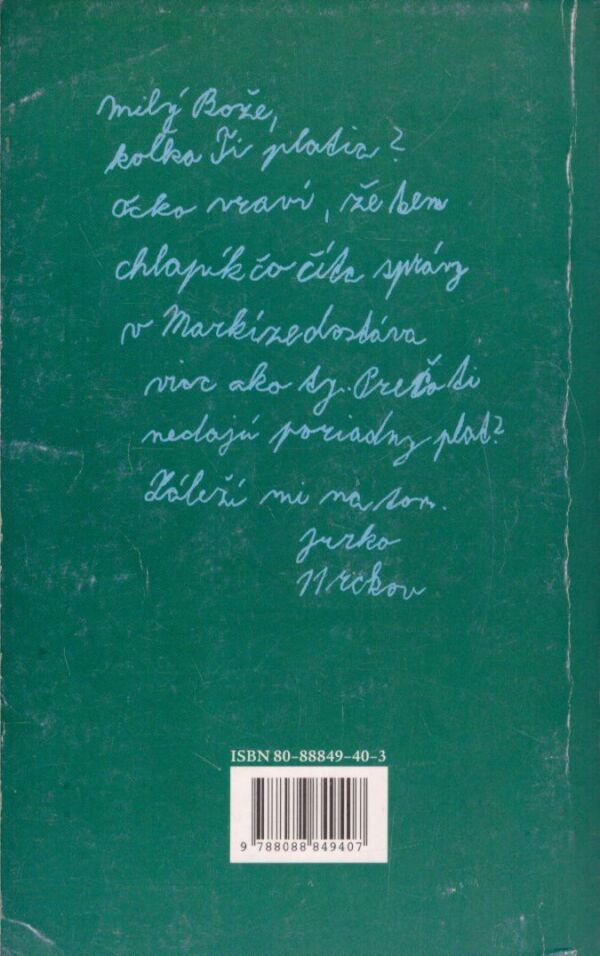 milý Bože,
kolko Ti platia?
Ocko vraví, že ten
chlapík čo číta správy
v Markízedostáva
viac ako ty. Prečoti
nedajú poriadny plat?
Záleží mi na tom.
Jurko
11 rokov
ISBN 80-88849-40-3
9 788088 849407